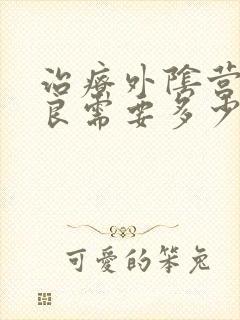 治療外陰营
良需要多少
可愛的笨兔